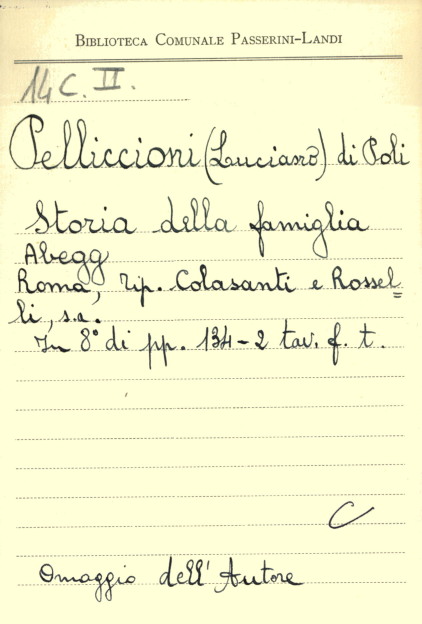 BIBLIOTECA COMUNALE PASSERINI-LANDI
14 C. II.
Pelliccioni (Luciano) di Poli
Storia della famiglia
Abegg
Roma, Tip. Colasanti e Rossel=
li, s.a.
In 8° di pp. 134-2 tav. f. t.
C
Omaggio dell'Autore